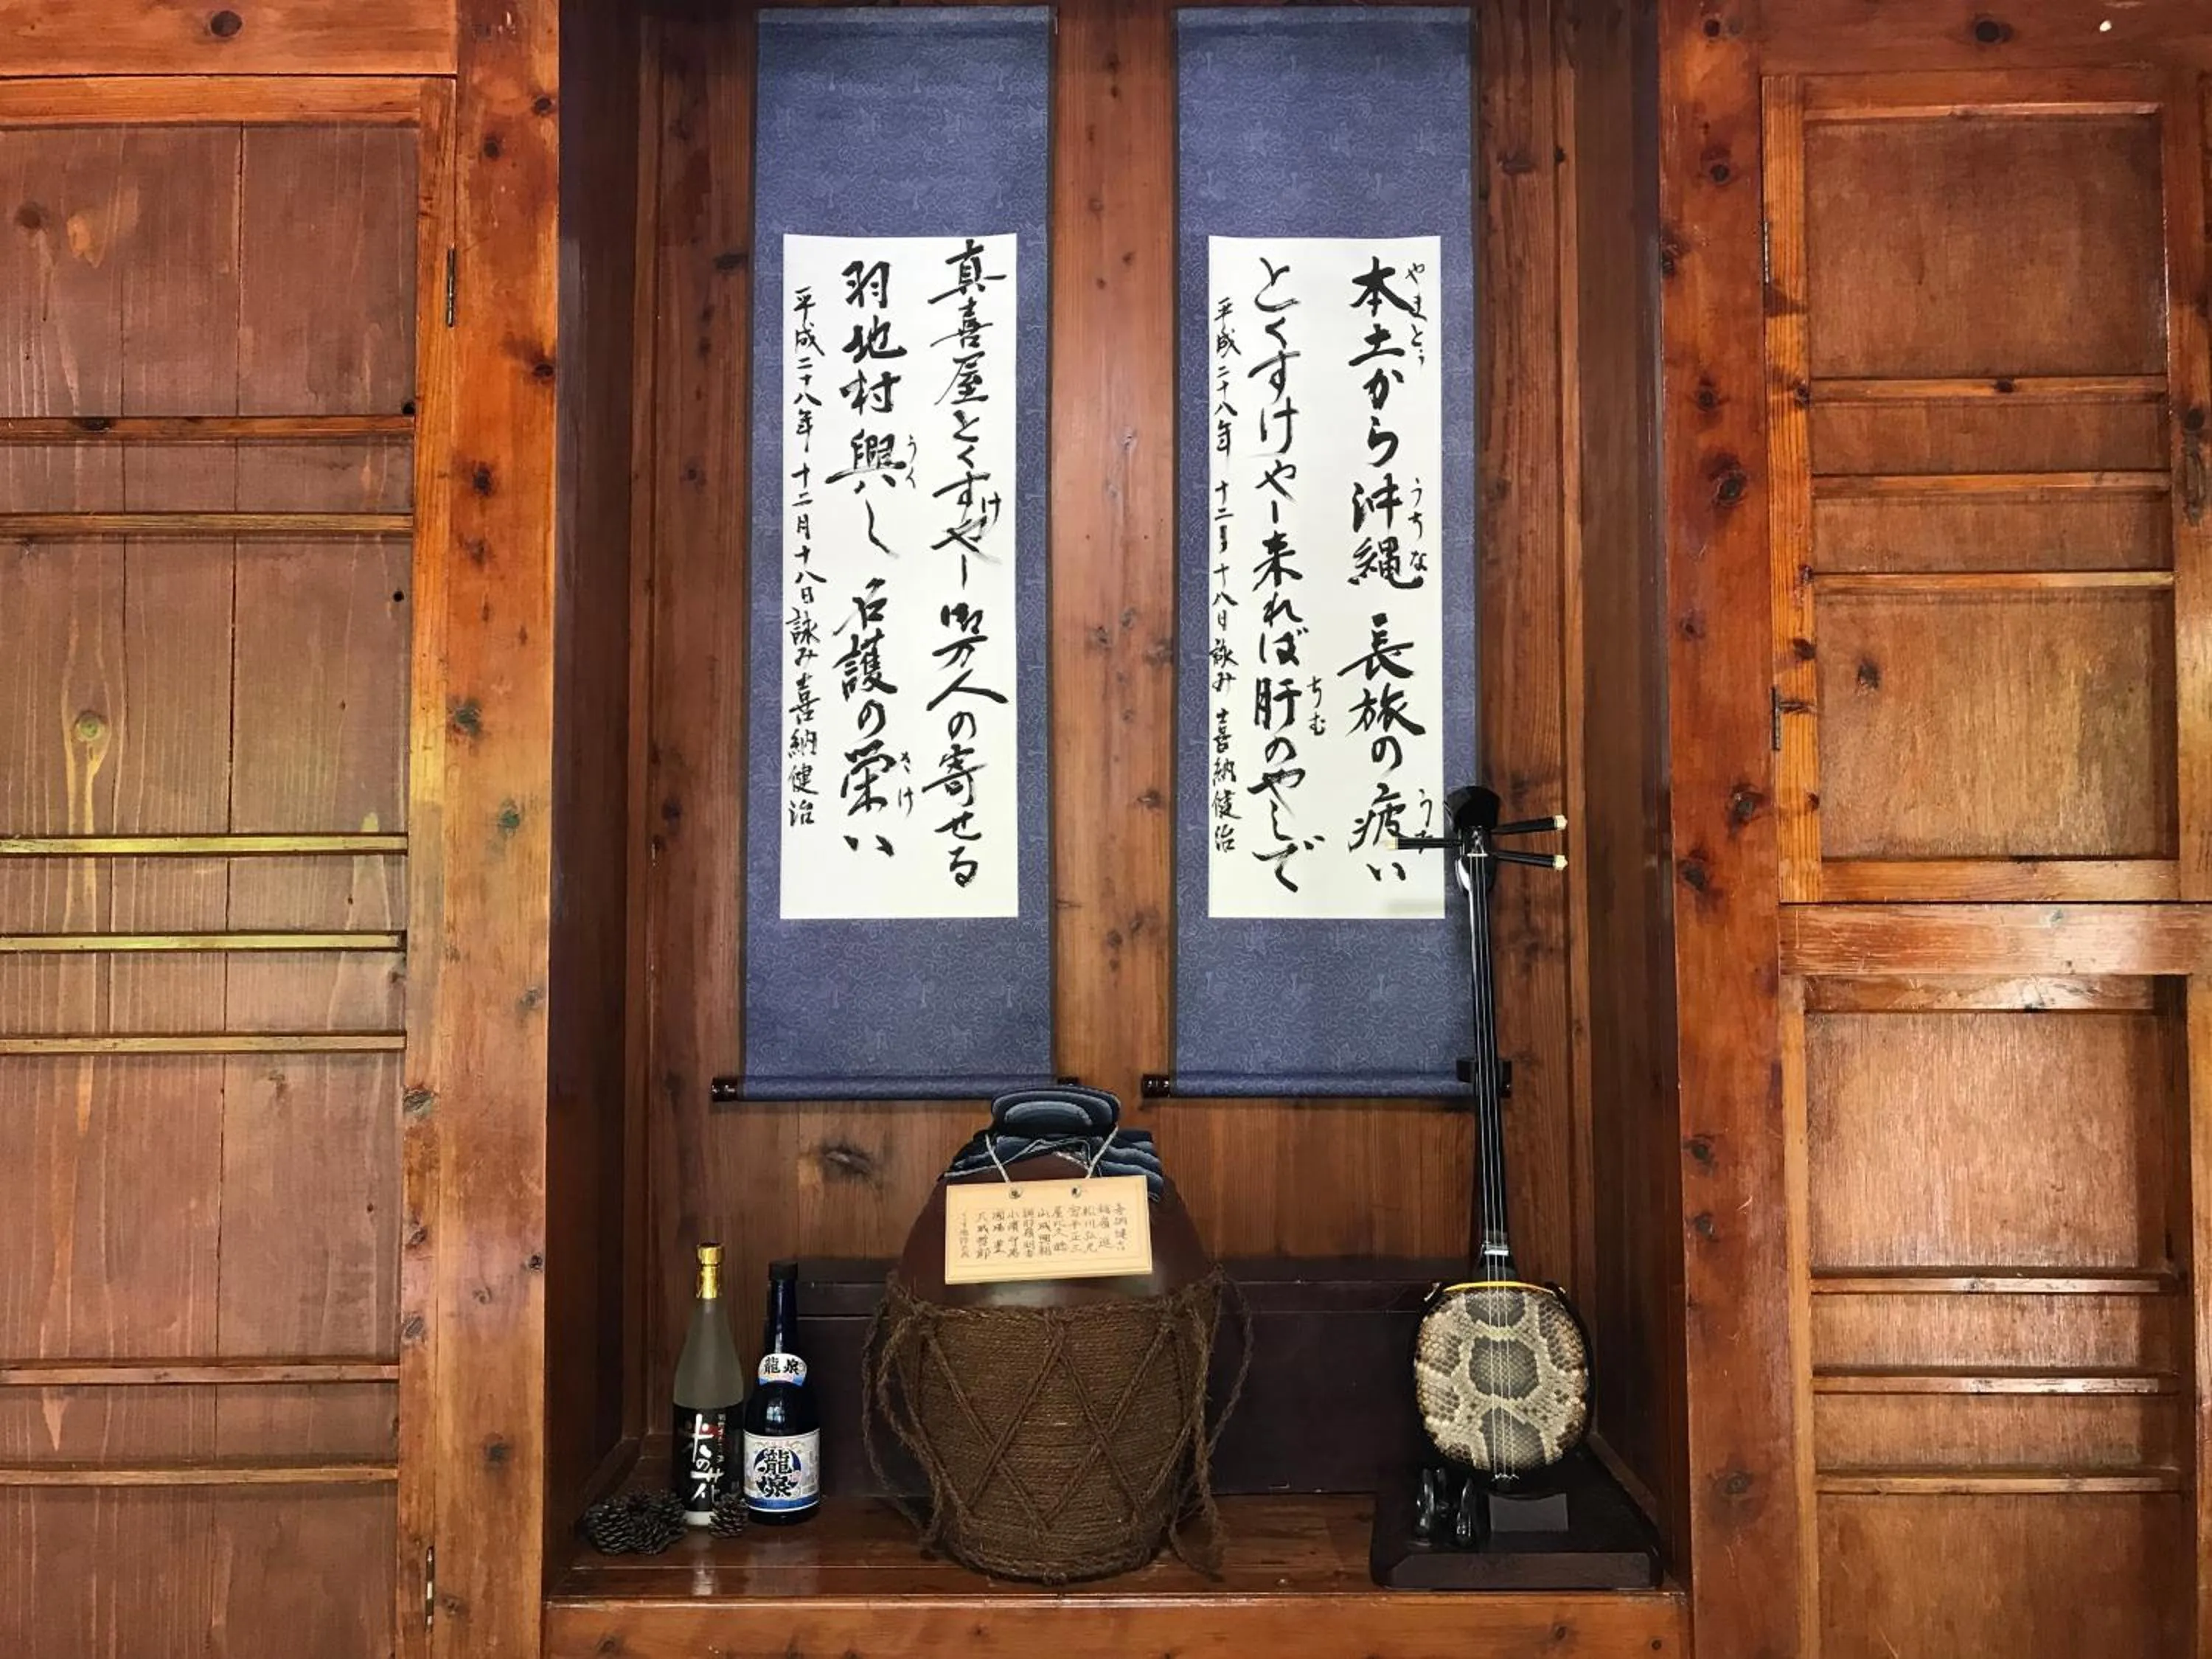 本土から沖縄 長旅の疲い
やまとぅ
うちな
とくすけやー来れば肝のやしで
ちむ
平成二十八年 十二月十八日 詠み 喜納健治
真喜屋とくすけやー御万人の寄せる
羽地村興し 名護の栄い
うく
さけ
平成二十八年 十二月十八日 詠み 喜納健治
米の花
龍泉
龍泉